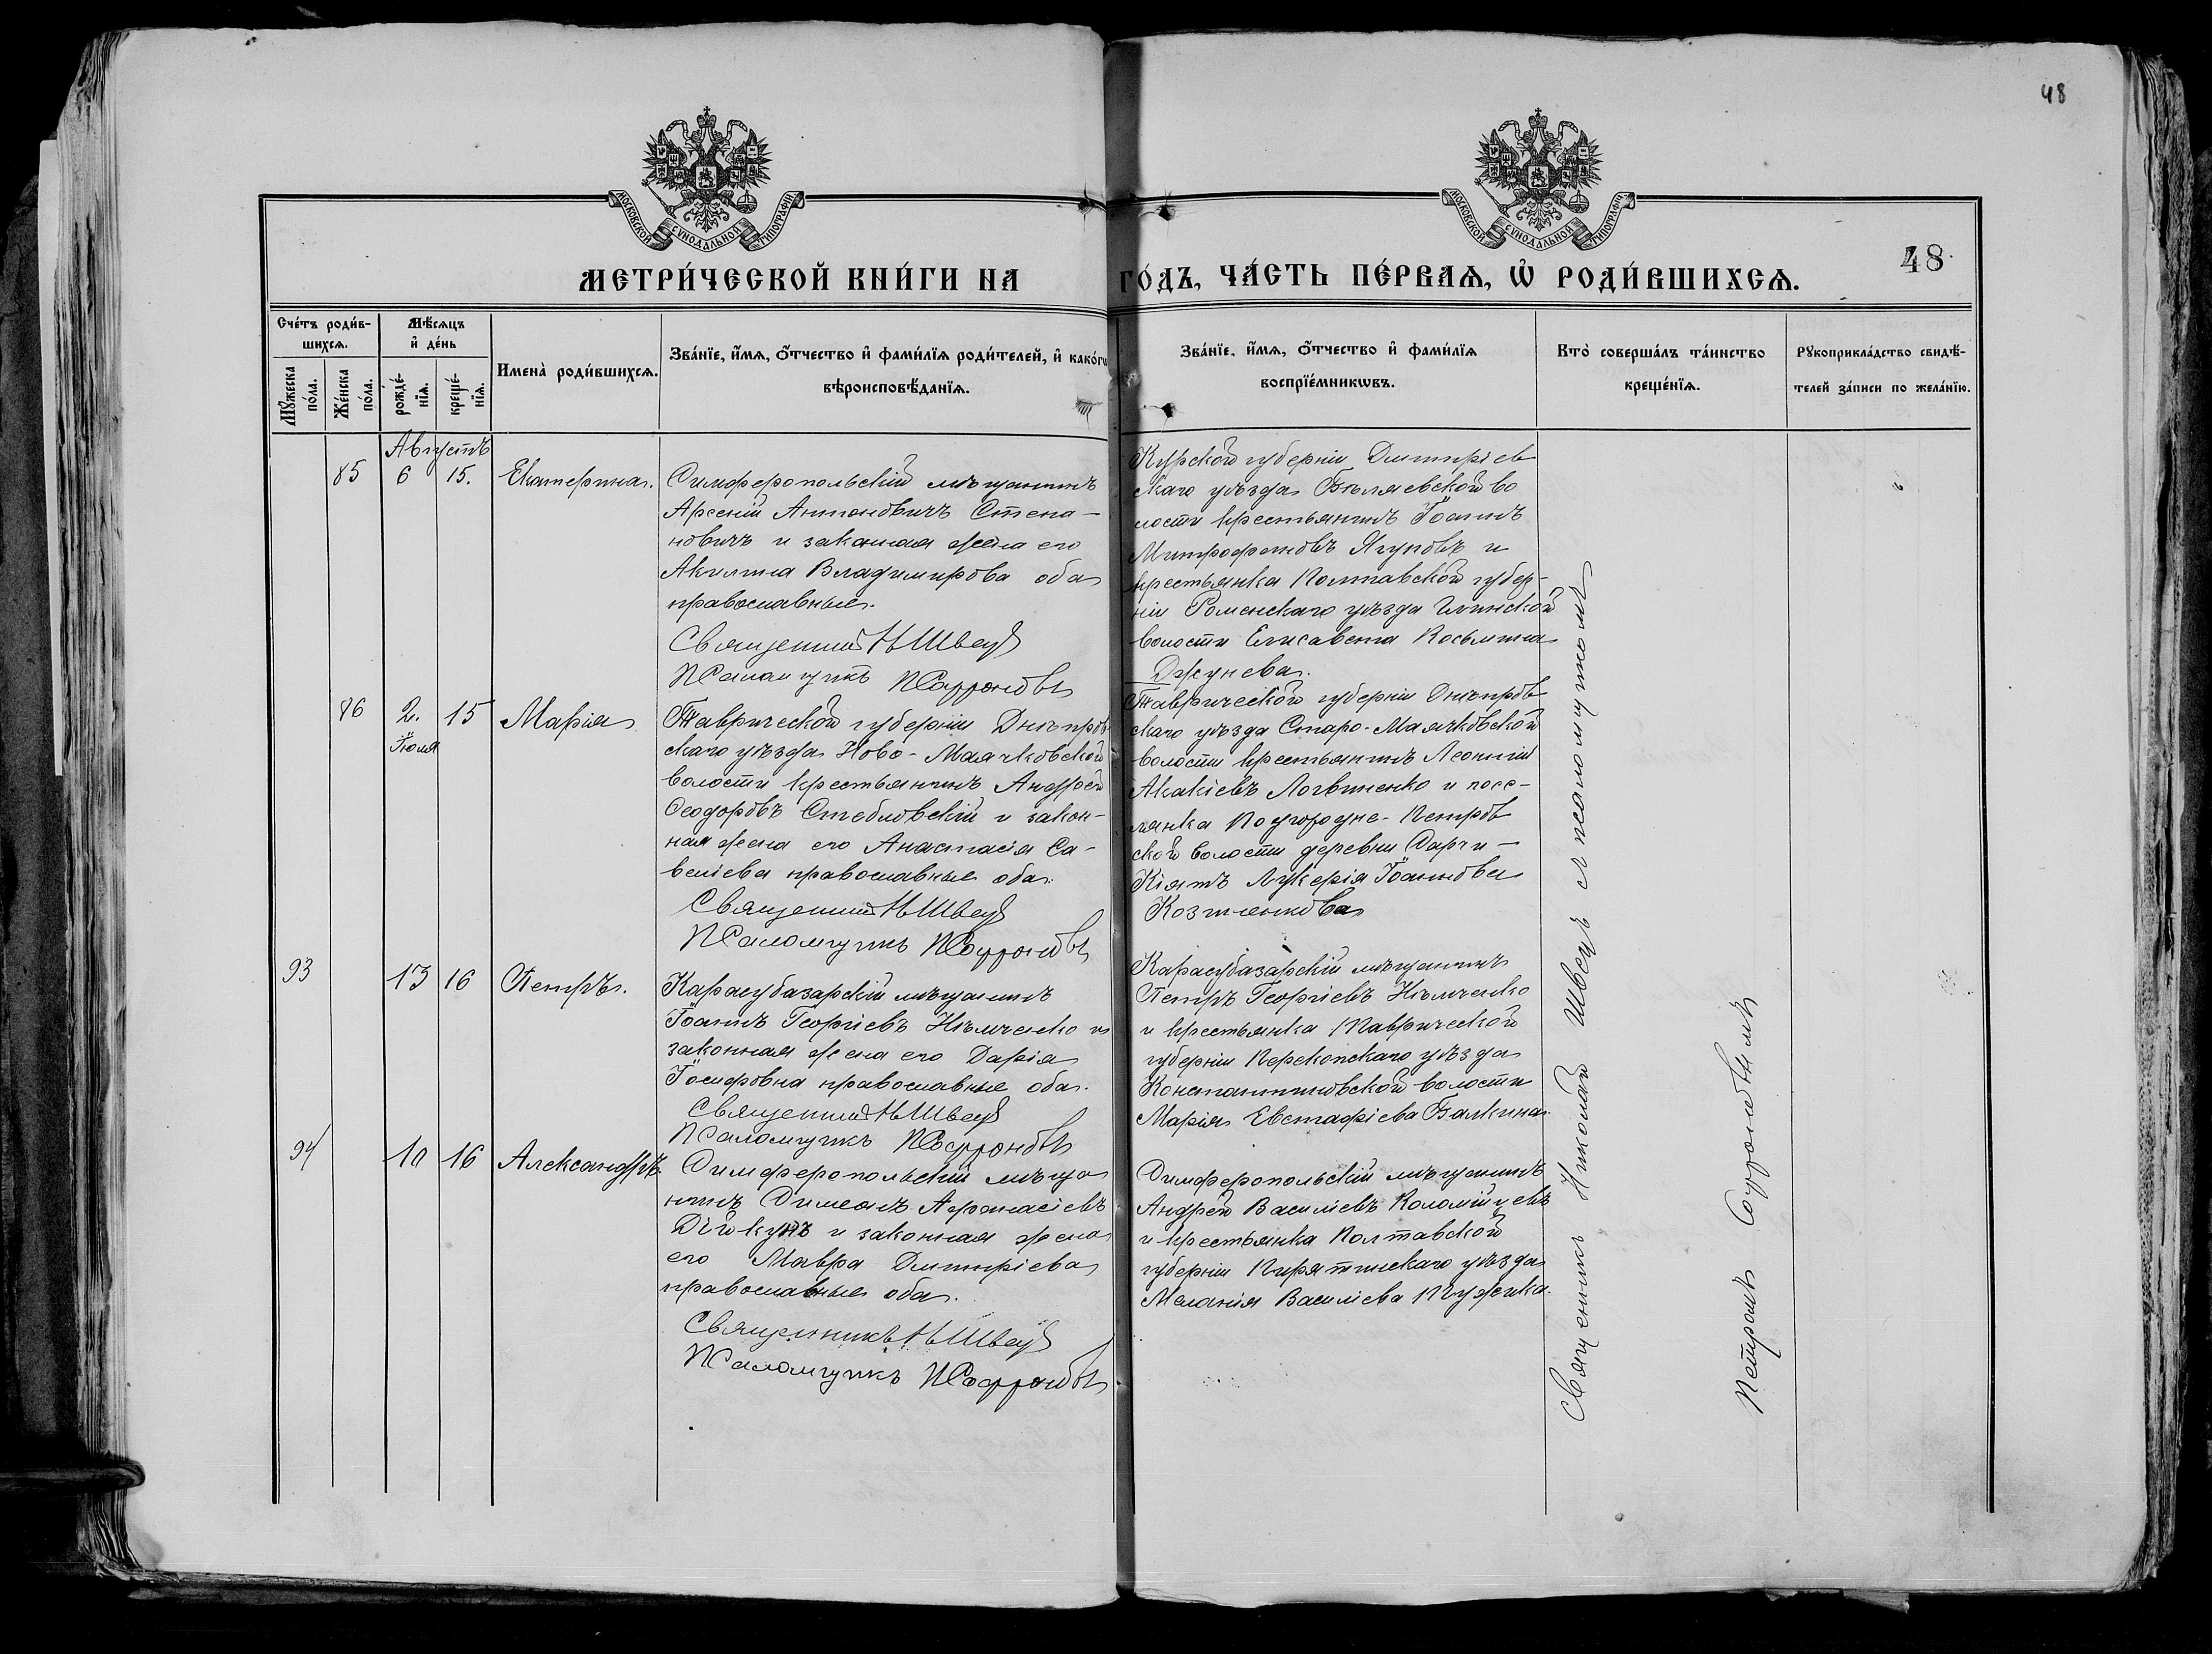 48
МОСКОВСКОЙ СУНОДАЛЬНОЙ ТИПОГРАФІИ
МОСКОВСКОЙ СУНОДАЛЬНОЙ ТИПОГРАФІИ
МЕТРИ́ЧЕСКОЙ КНИ́ГИ НА
ГО́ДЪ, ЧА́СТЬ ПЕ́РВАѦ, Ѡ҆ РОДИ́ВШИХСѦ.
48
Сче́тъ роди́в-
шихсѧ.
Мꙋ́жеска
по́ла.
Же́нска
по́ла.
Мѣ́сѧцъ
и҆ де́нь
рожде́-
нїѧ.
креще́-
нїѧ.
Имена̀ роди́вшихсѧ.
Зва́нїе, и҆́мѧ, о҆́тчество и҆ фами́лїѧ роди́телей, и҆ како́гѡ
вѣроисповѣ́данїѧ.
Зва́нїе, и҆́мѧ, о҆́тчество и҆ фами́лїѧ
воспрїе́мникѡвъ.
Кто̀ соверша́лъ та́инство
креще́нїѧ.
Рꙋкоприкла́дство свидѣ́-
телей за́писи по жела́нїю.
Августъ
85 6 15. Екатерина.
Симферопольскій мѣщанинъ
Арсеній Антоновичъ Степа-
новичъ и законная жена его
Акилина Владимирова оба
православные.
Священникъ Н Швецъ
Псаломщикъ П Софроновъ
Курской губерніи Дмитріев
скаго уѣзда Бѣляевской во
лости крестьянинъ Іоаннъ
Митрофановъ Ягуповъ и
крестьянка Полтавской губер-
ніи Роменскаго уѣзда Глинской
волости Елисавета Косьмина
Джунева.
86 2. 15 Марія
Іюля
Таврической губерніи Днѣпров
скаго уѣзда Ново-Маячковской
волости крестьянинъ Андрей
Ѳеодоровъ Стебловскій и закон-
ная жена его Анастасія Са-
веліева православные оба.
Священникъ Н Швецъ
Псаломщикъ П Софроновъ
Таврической губерніи Днѣпров
скаго уѣзда Старо-Маячковской
волости крестьянинъ Леонтій
Акакіевъ Логвиненко и посе-
лянка Подгородне-Петров
ской волости деревни
Кіятъ Лукерія Іоаннова
93 13 16 Петръ.
Карасубазарскій мѣщанинъ
Іоаннъ Георгіевъ Нѣмченко и
законная жена его Дарія
Іосифовна православные оба.
Священникъ Н Швецъ
Псаломщикъ П Софроновъ
Карасубазарскій мѣщанинъ
Петръ Георгіевъ Нѣмченко
и крестьянка Таврической
губерніи Перекопскаго уѣзда
Константиновской волости
Марія Евстафіева Балкина.
94 10 16 Александръ.
Симферопольскій мѣща
нинъ Симеонъ Аѳанасіевъ
и законная жена
его Мавра Димитріева
православные оба.
Священникъ Н Швецъ
Псаломщикъ П Софроновъ
Симферопольскій мѣщанинъ
Андрей Василіевъ Коломійцевъ
и крестьянка Полтавской
губерніи Пирятинскаго уѣзда
Меланія Василіева
Священникъ Николай Швецъ с псаломщикомъ
Петромъ Софроновымъ